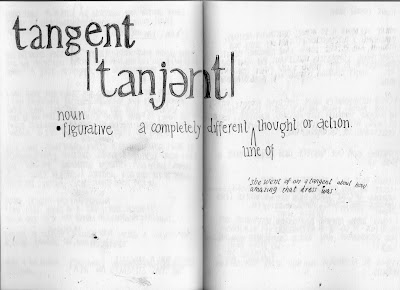 tangent
|'tanjənt|
noun
•figurative a completely different thought or action.
line of
'she went of on a tangent about how
amazing that dress was'